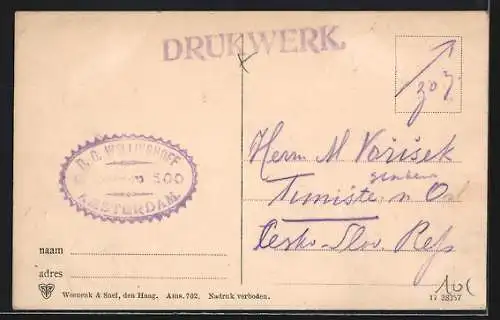 DRUKWERK.
D. C. WOLLINGHOFF
500
AMSTERDAM
Herrn M Voříšek
Tuniště n Orl
Česko-Slov. Rep
naam
adres
Weenenk & Snel, den Haag. Ams. 702. Nadruk verboden.
17 28357